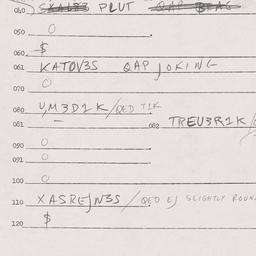 040 PLUT
050 0
060 $
061 KATOV3S QAP JOKING
070 0
080 U,M3D1K/QED T1K
081 082 TREUE3R1K/
090 0
091 0
100 0
110 XASREJN3S / QED EJ SLIGHTLY ROUN
120 $